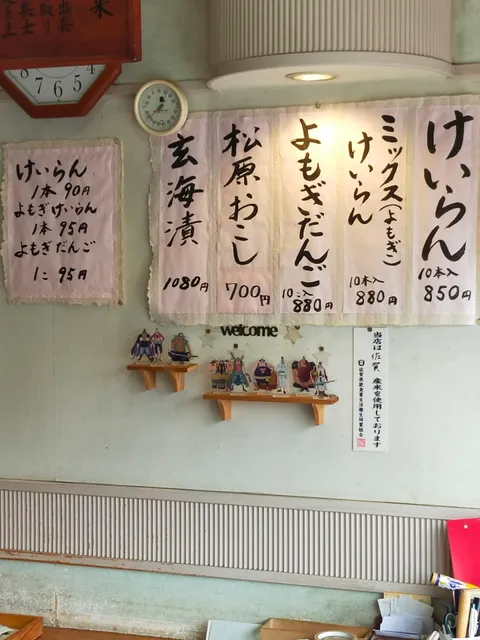 けいらん
1本 90円
よもぎけいらん
1本 95円
よもぎだんご
1コ 95円
けいらん
10本入
850円
ミックス(よもぎ)
けいらん
10本入
880円
よもぎだんご
10コ入
880円
松原おこし
700円
玄海漬
1080円
welcome
当店は 佐賀 産米を使用しております
8 7 6 5 4